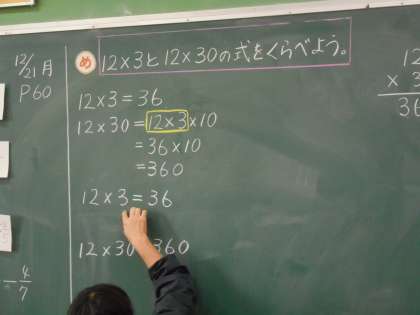 12/21月
P60
め 12×3と12×30の式をくらべよう。
12×3=36
12×30=12×3×10
=36×10
=360
12×3=36
12×30 360
12
×3
36
4/7